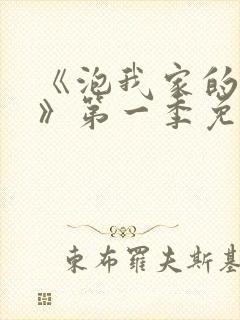 《泡我家的
》第一季免
東布羅夫斯基